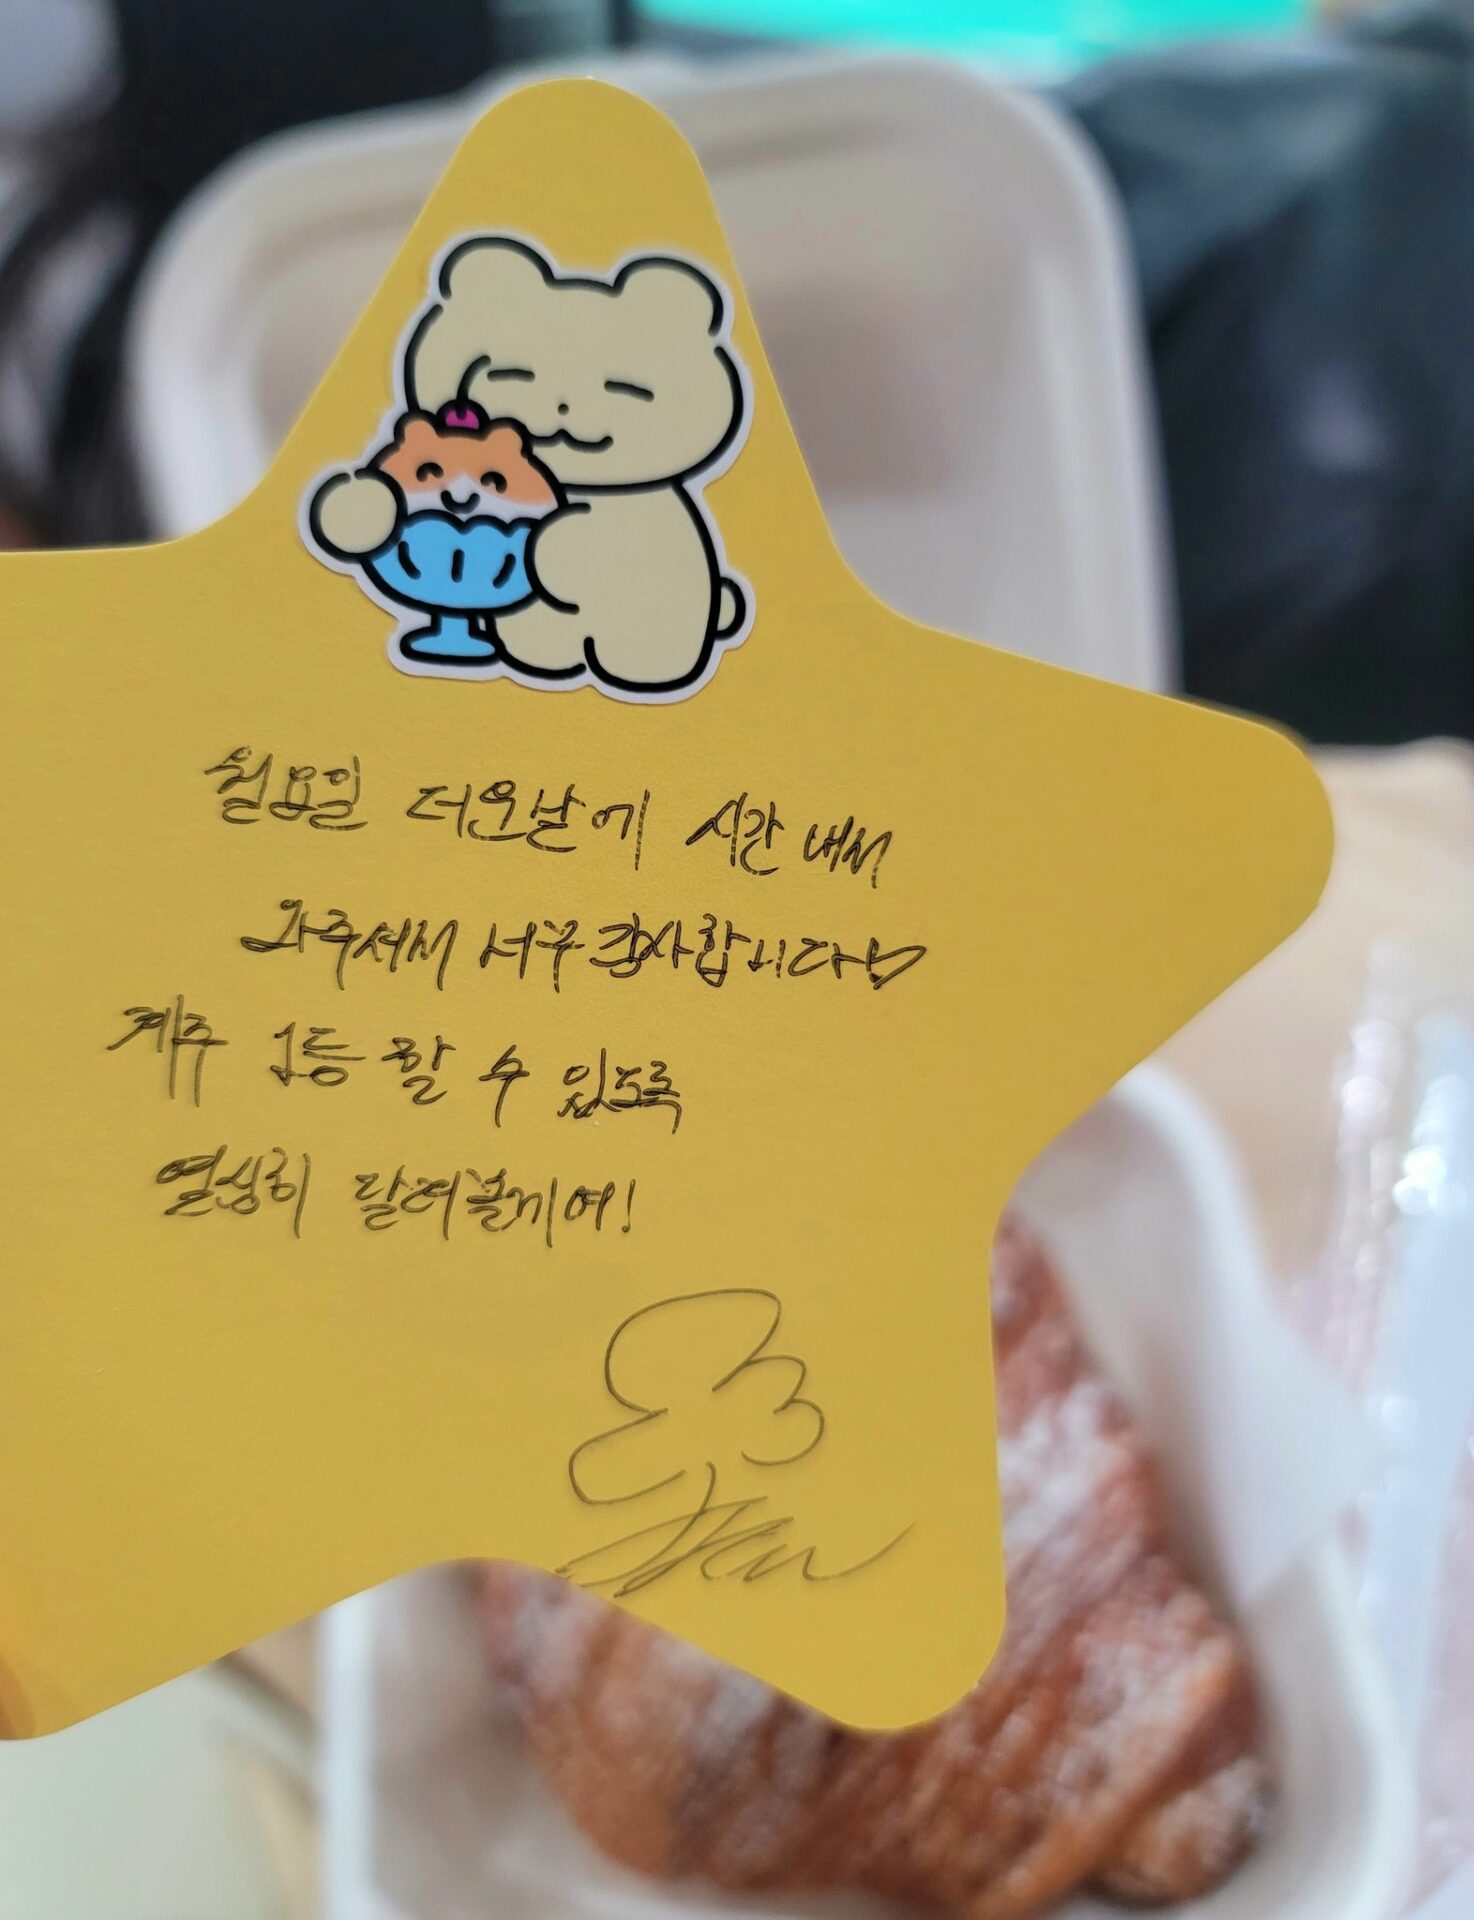 월요일 더운날에 시간 내서
와주셔서 너무 감사합니다♡
계주 1등 할 수 있도록
열심히 달려볼게여!